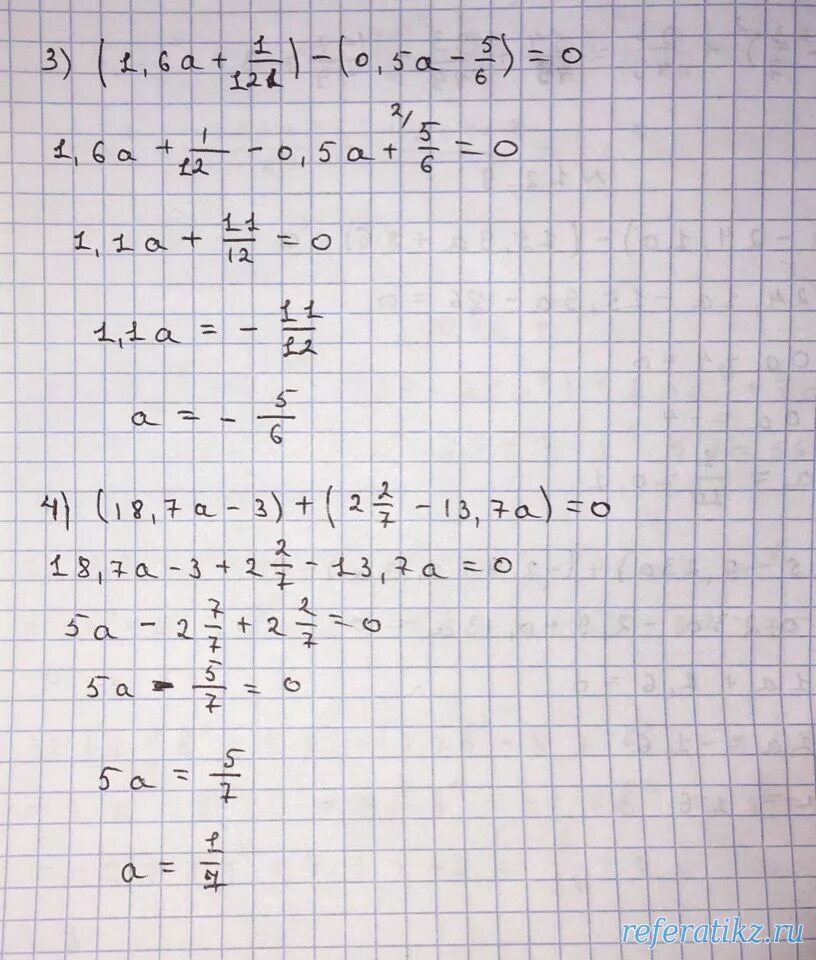 3) (1,6a + 1/121) - (0,5a - 5/6) = 0
1,6a + 1/12 - 0,5a + 2/ 5/6 = 0
1,1a + 11/12 = 0
1,1a = - 11/12
a = - 5/6
4) (18,7a - 3) + (2 2/7 - 13,7a) = 0
18,7a - 3 + 2 2/7 - 13,7a = 0
5a - 2 7/7 + 2 2/7 = 0
5a - 5/7 = 0
5a = 5/7
a = 1/7
referatikz.ru